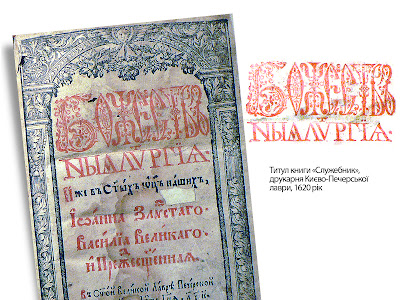 БОЖЄСТВ
НЫА ЛѴРГЇА·
И҆́же въ Ст҃ыхъ ѿц҃ъ нашихъ,
Іѡанна Златоустаго·
Василїа Великаго·
и Преждесщеннаа·
Въ Ст҃ой Великой Лаврѣ Печерской
БОЖЄСТВ
НЫА ЛѴРГЇА·
Титул книги «Служебник»,
друкарня Києво-Печерської
лаври, 1620 рік